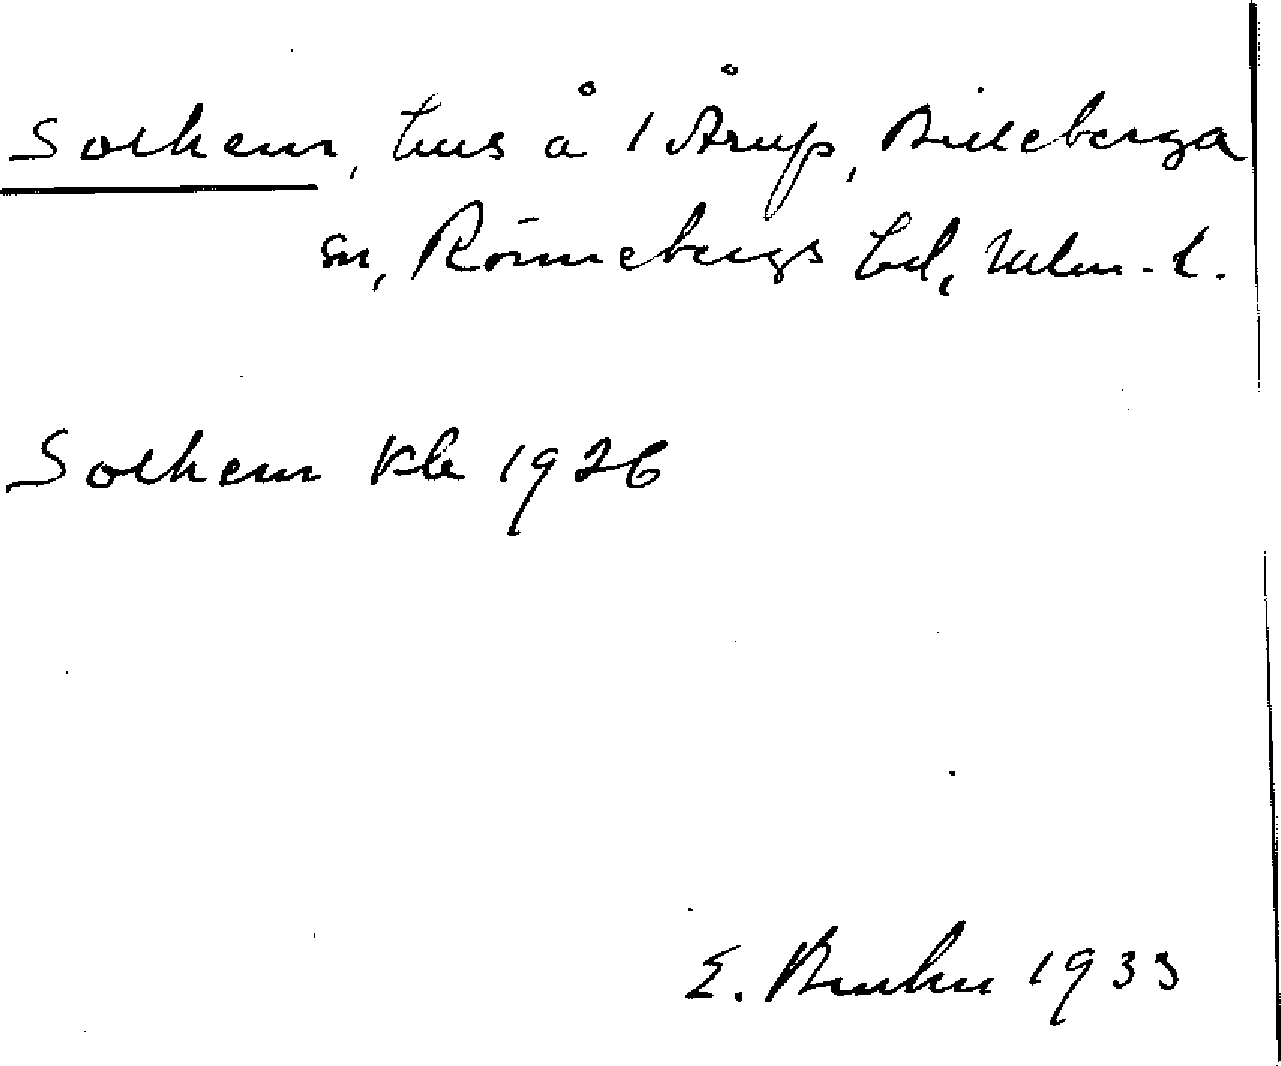 Solhem, hus å 1 Årup, Billeberga
sn, Rönnebergs hd, Malm. l.
Solhem Kb 1926
E. Bruhn 1933